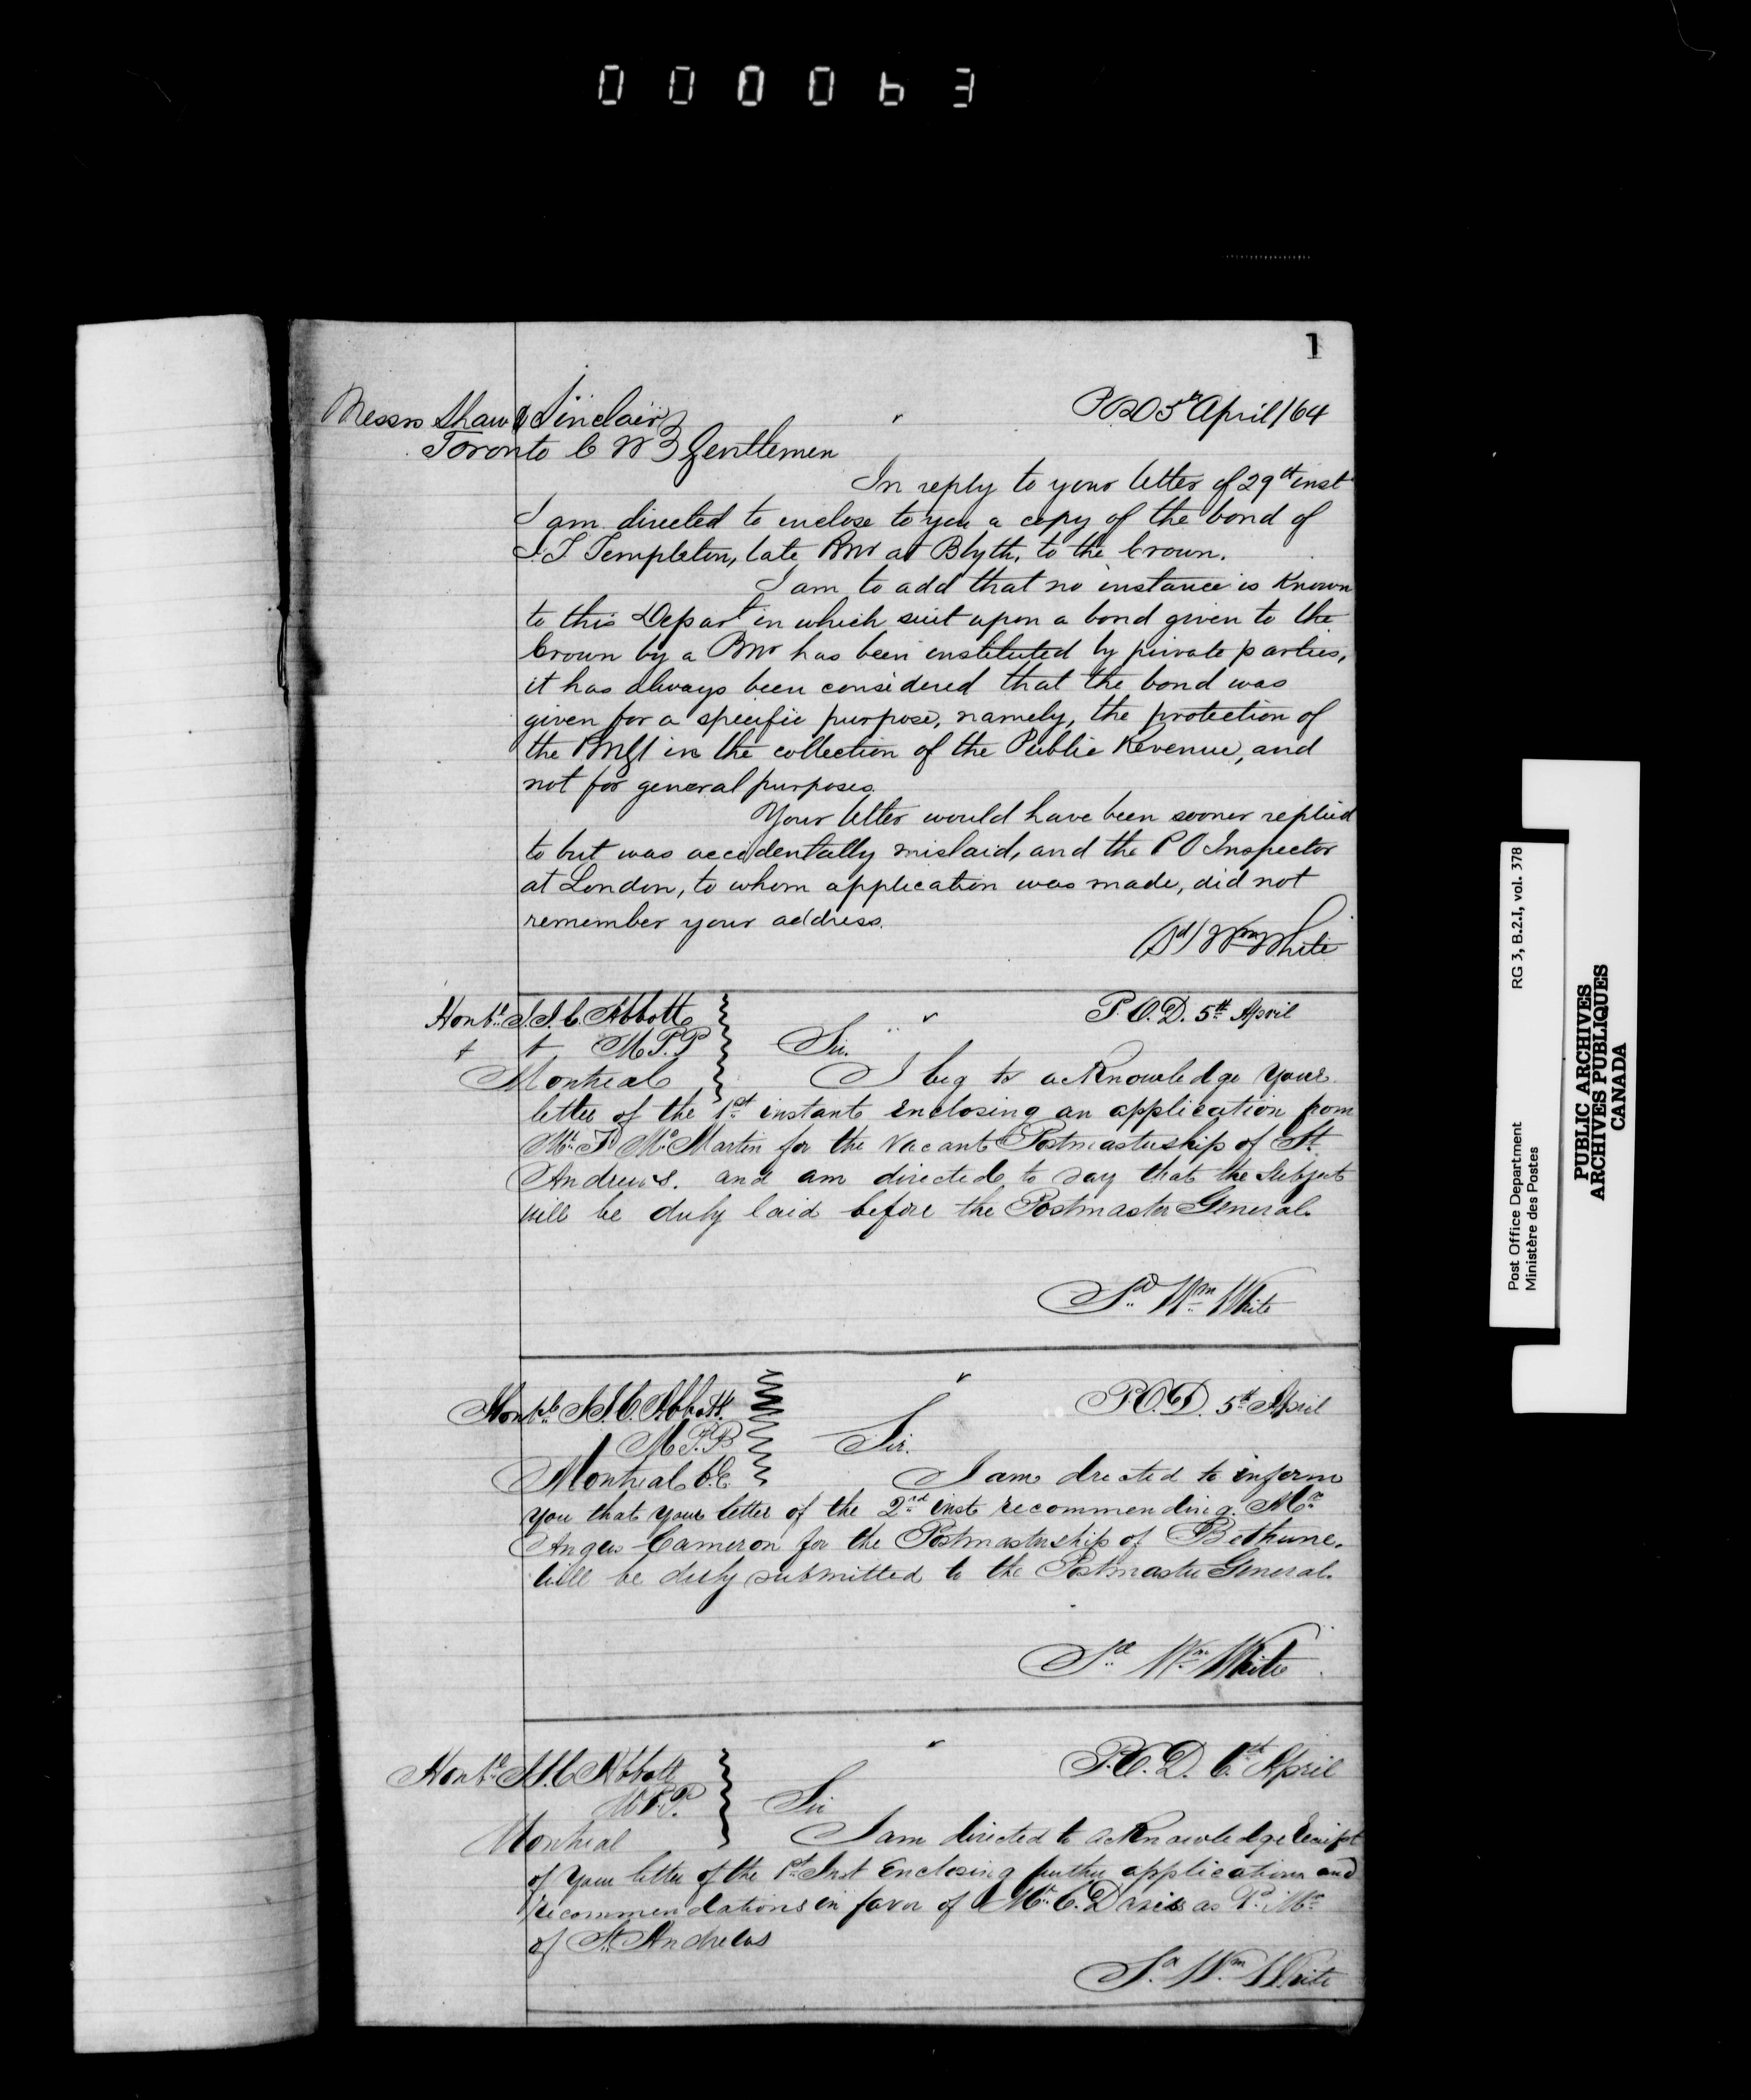 000063
1
Messrs Shaw & Sinclair
POD 5th April/64
Toronto C W Gentlemen
In reply to your letter of 29th inst
I am directed to enclose to you a copy of the bond of
Templeton, late PMr at Blyth, to the Crown.
I am to add that no instance is known
to this Depart in which suit upon a bond given to the
Crown by a PMr has been instituted by private parties,
it has always been considered that the bond was
given for a specific purpose, namely, the protection of
the PMGl in the collection of the Public Revenue, and
not for general purposes.
Your letter would have been sooner replied
to but was accidentally mislaid, and the P O Inspector
at London, to whom application was made, did not
remember your address.
(Sd) Wm White
Honble J. J. C. Abbott
P. O. D. 5th April
M.P.P
Sir.
Montreal
I beg to acknowledge your
letter of the 1st instant enclosing an application from
Mr McMartin for the vacant Postmastership of St
Andrews. and am directed to say that the subject
will be duly laid before the Postmaster General.
Sd Wm White
Honble J. J. C. Abbott.
P. O. D. 5th April
M.P.P
Sir.
Montreal C.E.
I am drected to inform
you that your letter of the 2nd inst recommending Mr
Angus Cameron for the Postmastership of Bethune.
will be duly submitted to the Postmaster General.
Sd Wm White
Honble J. J. C Abbott
P. O. D. 6th April
M.P.P.
Sir
Montreal
I am directed to acknowledge receipt
of your letter of the 1st Inst Enclosing further applications and
recommendations in favor of Mr C. Davis as P. Mr
of St Andrews
Sd Wm White
Post Office Department RG 3, B.2.I, vol. 378
Ministère des Postes
PUBLIC ARCHIVES
ARCHIVES PUBLIQUES
CANADA